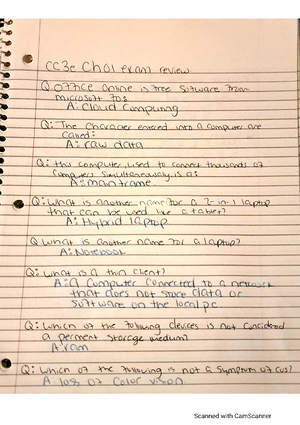 CC3e Ch01 exam review
Q: Office online is free Software from
microsoft for:
A: Cloud Computing
Q: The Character entered into a computer are
Called:
A: raw data
Q: this computer, used to connect thousands of
Computers Simultaneously is a:
A: mainframe
Q: What is another name for a 2-in-1 laptop
that can be used like a tablet?
A: Hybrid laptop
Q What is another name for a laptop?
A: Notebook
Q: What is a thin client?
A: A Computer Connected to a network
that does not store data or
Software on the local pc
Q: Which of the following devices is not Concidered
a perment Storage medium?
A: ram
Q: Which of the following is not a Symptom of CVS?
A. loss of Color vision
Scanned with CamScanner